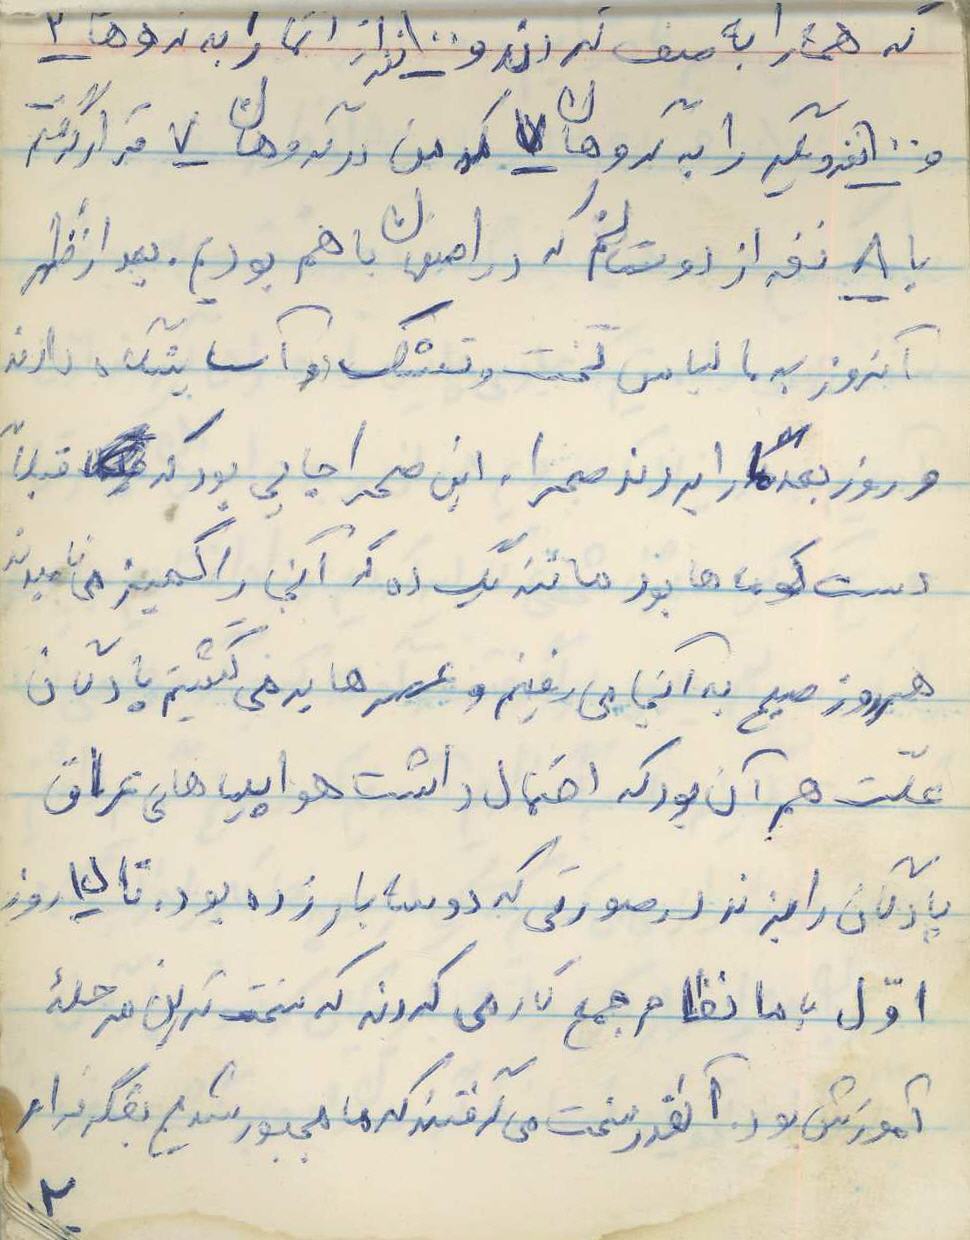 که همه را به صف کردند و ۱۰۰ نفر از آنها را به گروهان ۲
و ۱۰۰ نفر دیگر را به گروهان ۷ که من در گروهان ۷ قرار گرفتم
با ۸ نفر از دوستانم که در اصفهان با هم بودیم. بعد از ظهر
آنروز به ما لباس تخت و تشک و آسایشگاه دادند
و روز بعد ما را بردند صحرا، این صحرا جایی بود که قبلاً
دست کومله ها بود مانند یک ده که آنجا را کهریز می نامیدند
هر روز صبح به آنجا می رفتیم و عصرها برمی گشتیم پادگان
علّت هم آن بود که احتمال داشت هواپیماهای عراق
پادگان را بزنند در صورتی که دو سه بار زده بود. تا روز
اوّل با ما نظام جمع کار می کردند که سخت ترین مرحلهٔ
آموزش بود. آنقدر سخت می گرفتند که ما مجبور شدیم بفکر فرار
۲